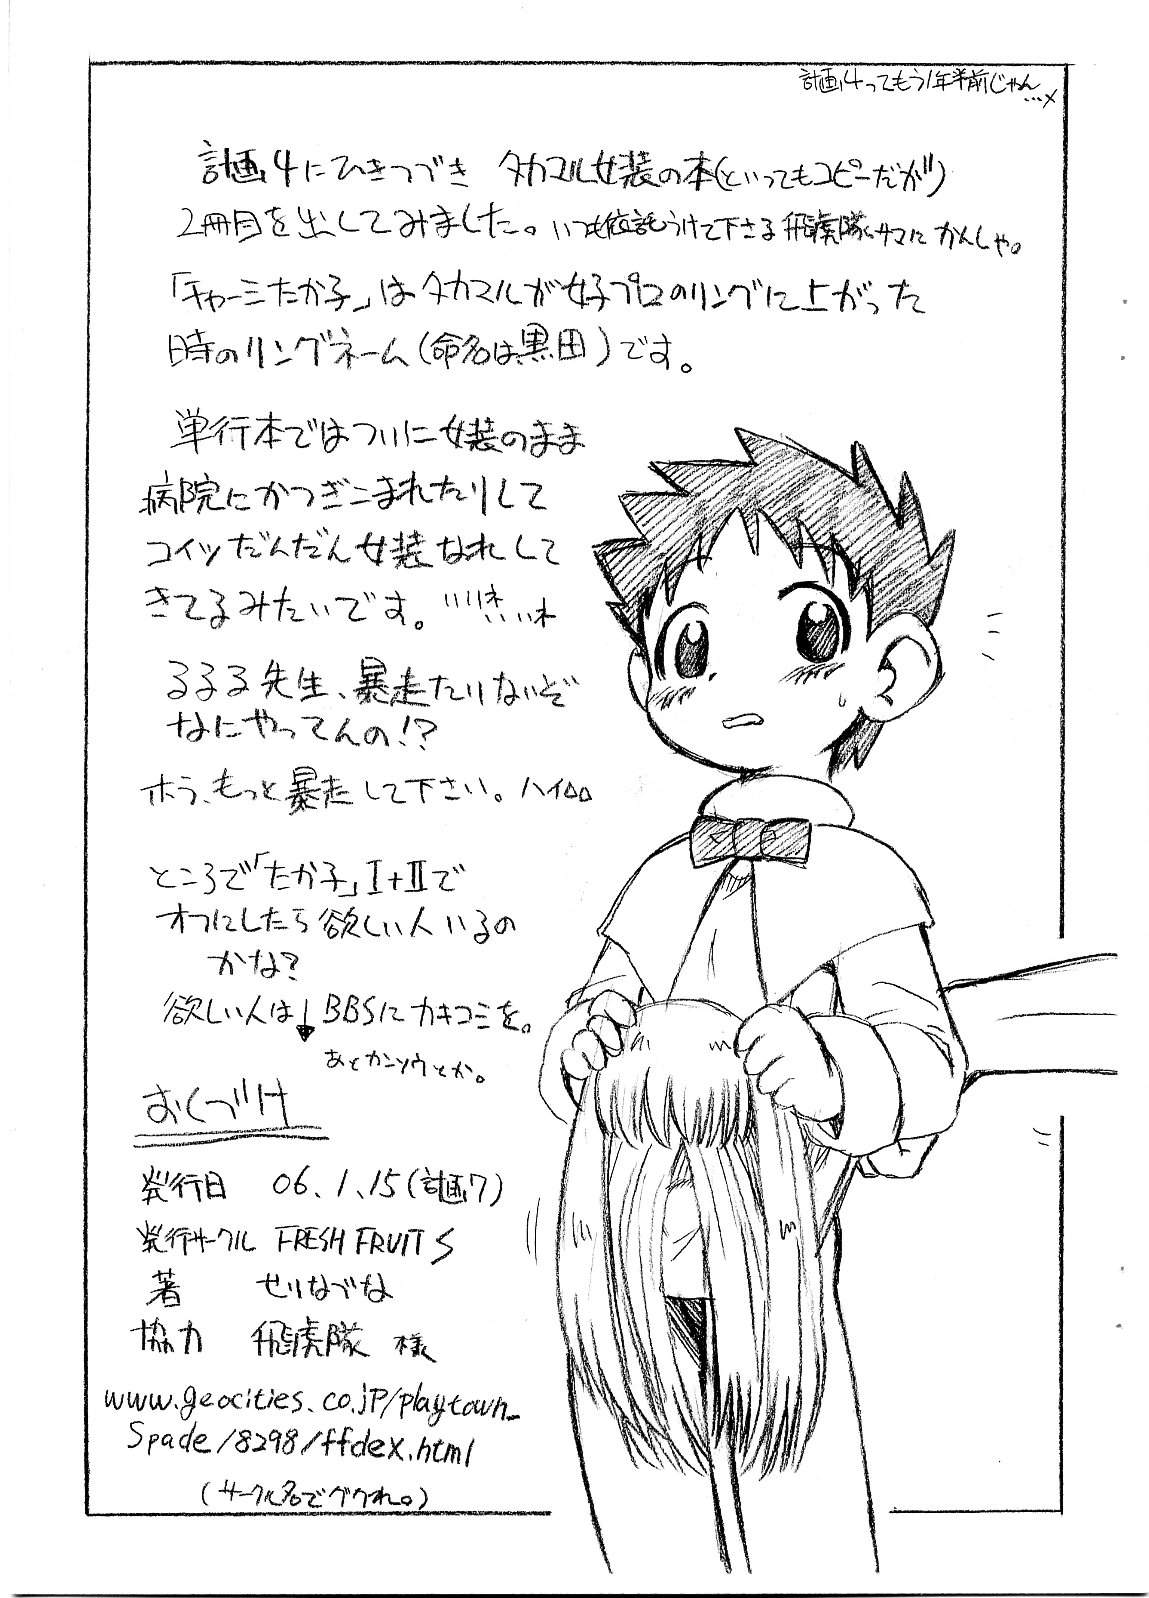 計画4ってもう1年半前じゃん
…×
計画4にひきつづき タカマル女装の本(といってもコピーだが)
2冊目を出してみました。いつも委託うけて下さる飛虎隊サマに かんしゃ。
「チャーミーたか子」はタカマルが女子プロのリングに上がった
時のリングネーム(命名は黒田)です。
単行本ではついに女装のまま
病院にかつぎこまれたりして
コイツだんだん女装なれして
きてるみたいです。
るるる先生、暴走たりないぞ
なにやってんの!?
ホラ、もっと暴走して下さい。ハイ△△
ところで「たか子」I+IIで
オフにしたら欲しい人いるの
かな?
欲しい人は↓BBSにカキコミを。
あとカンソウとか。
おくづけ
発行日 06.1.15(計画7)
発行サークル FRESH FRUITS
著 せりなずな
協力 飛虎隊 様
www.geocities.co.jp/playtown_
Spade/8298/ffdex.html
(サークル名でググれ。)